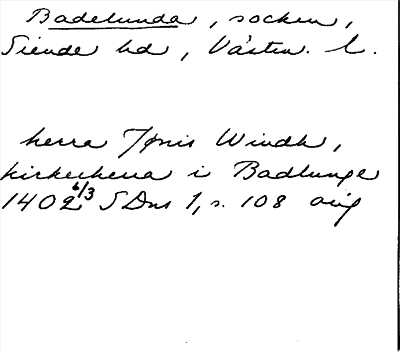 Badelunda, socken,
Siende hd, Västm. l.
herra Jønis Windh,
kirkecherra i Badlunge
1402 6/3 SDns 1, s. 108 orig